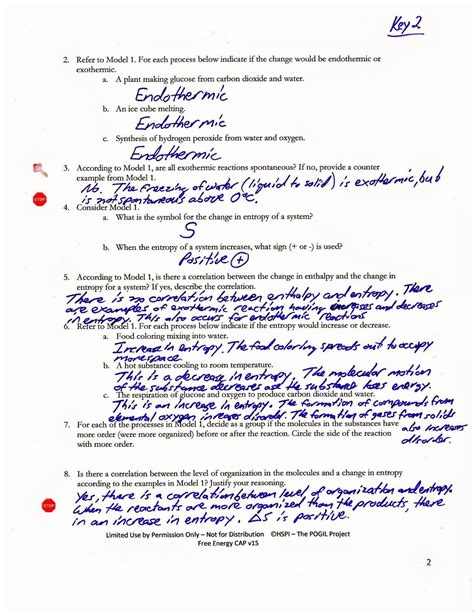 Key 2
2. Refer to Model 1. For each process below indicate if the change would be endothermic or
exothermic.
a. A plant making glucose from carbon dioxide and water.
Endothermic
b. An ice cube melting.
Endothermic
c. Synthesis of hydrogen peroxide from water and oxygen.
Endothermic
3. According to Model 1, are all exothermic reactions spontaneous? If no, provide a counter
example from Model 1.
No. The freezing of water (liquid to solid) is exothermic, but
STOP
is not spontaneous above 0°C.
4. Consider Model 1.
a. What is the symbol for the change in entropy of a system?
S
b. When the entropy of a system increases, what sign (+ or -) is used?
Positive (+)
5. According to Model 1, is there a correlation between the change in enthalpy and the change in
entropy for a system? If yes, describe the correlation.
There is no correlation between enthalpy and entropy. There
are examples of exothermic reaction having increases and decreases
in entropy. This also occurs for endothermic reactions.
6. Refer to Model 1. For each process below indicate if the entropy would increase or decrease.
a. Food coloring mixing into water.
Increase in entropy. The food coloring spreads out to occupy
more space.
b. A hot substance cooling to room temperature.
This is a decrease in entropy. The molecular motion
of the substance decreases as the substance loses energy.
c. The respiration of glucose and oxygen to produce carbon dioxide and water.
This is an increase in entropy. The formation of compounds from
elements increases disorder. The formation of gases from solids
also increases
disorder.
7. For each of the processes in Model 1, decide as a group if the molecules in the substances have
more order (were more organized) before or after the reaction. Circle the side of the reaction
with more order.
8. Is there a correlation between the level of organization in the molecules and a change in entropy
according to the examples in Model 1? Justify your reasoning.
Yes, there is a correlation between level of organization and entropy.
STOP
When the reactants are more organized than the products, there
is an increase in entropy. ΔS is positive.
Limited Use by Permission Only – Not for Distribution ©HSPI – The POGIL Project
Free Energy CAP v1S
2